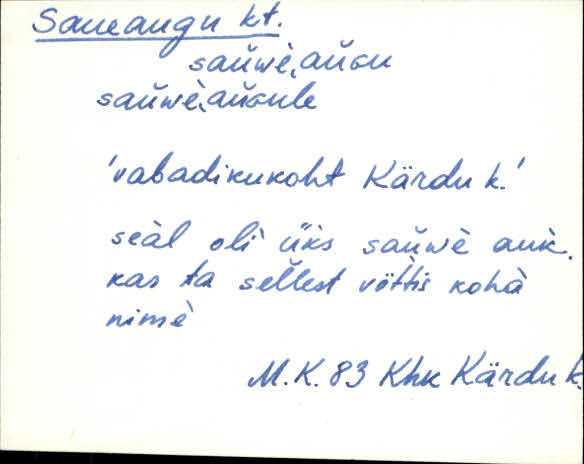 Saueaugu kt.
saǔwè, aǔGu
saǔwè, aǔGule
'vabadikukoht Kärdu k.'
seàl olì üks saǔwè auk.
kas ta sellest võttis kohà
nimè
M.K. 83 Khk Kärdu k.